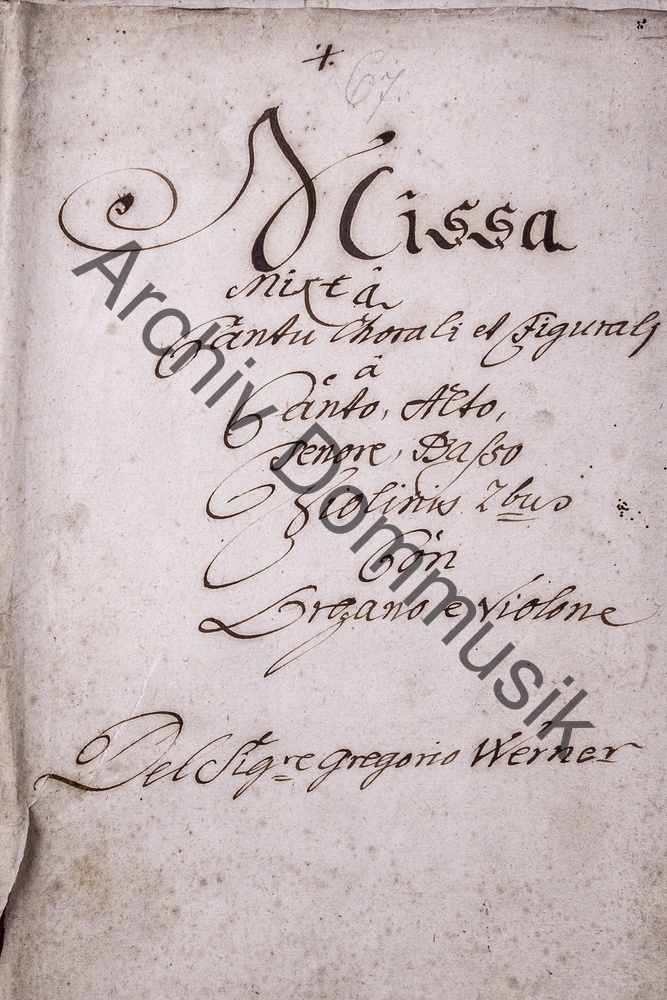 67.
Missa
Mixta
Cantu Chorali et Figurali
â
Canto, Alto,
Tenore, Basso
Violinis 2bus
Con
Organo e Violone
Del Sigre Gregorio Werner
Archiv Dommusik